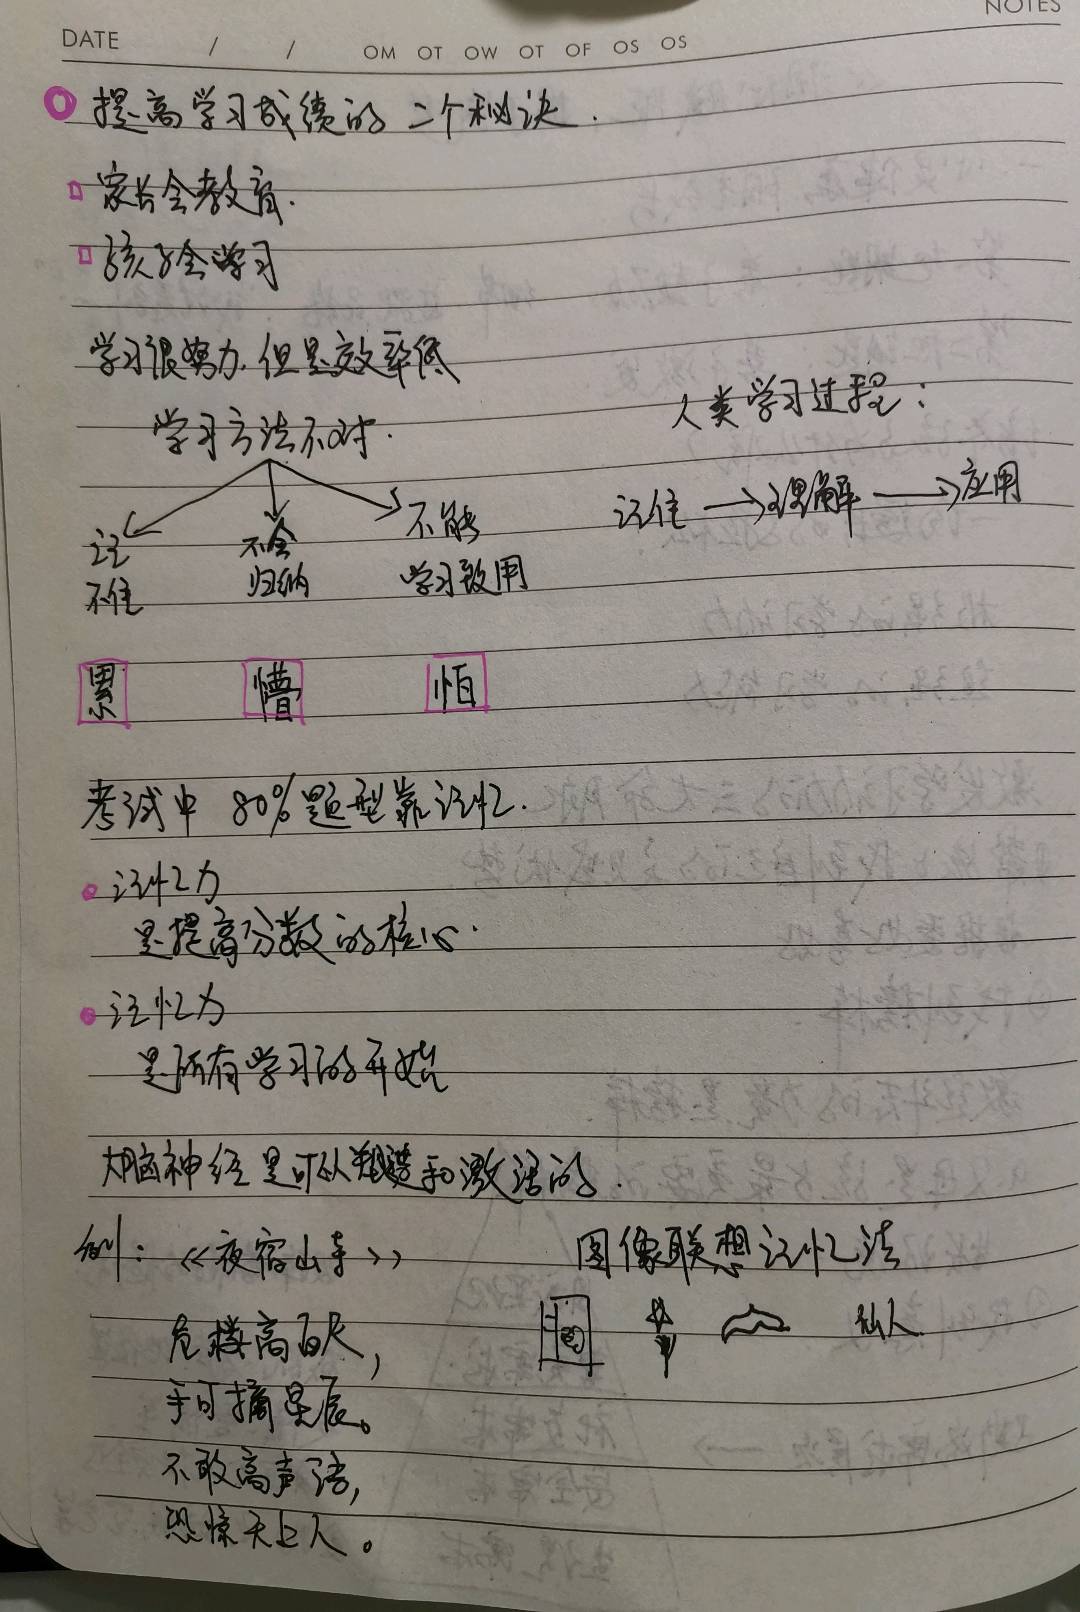 NOTES
DATE / / OM OT OW OT OF OS OS
提高学习成绩的 二个秘诀.
家长会教育.
孩子会学习
学习很努力.但是效率低
学习方法不对.
人类学习过程:
记住 → 理解 → 应用
记不住
不会归纳
不能学习致用
累 懵 怕
考试中 80%题型靠记忆.
记忆力
是提高分数的核心.
记忆力
是所有学习的开始
大脑神经是可以塑造和激活的.
例:《夜宿山寺》 图像联想记忆法
仙人
危楼高百尺,
手可摘星辰。
不敢高声语,
恐惊天上人。